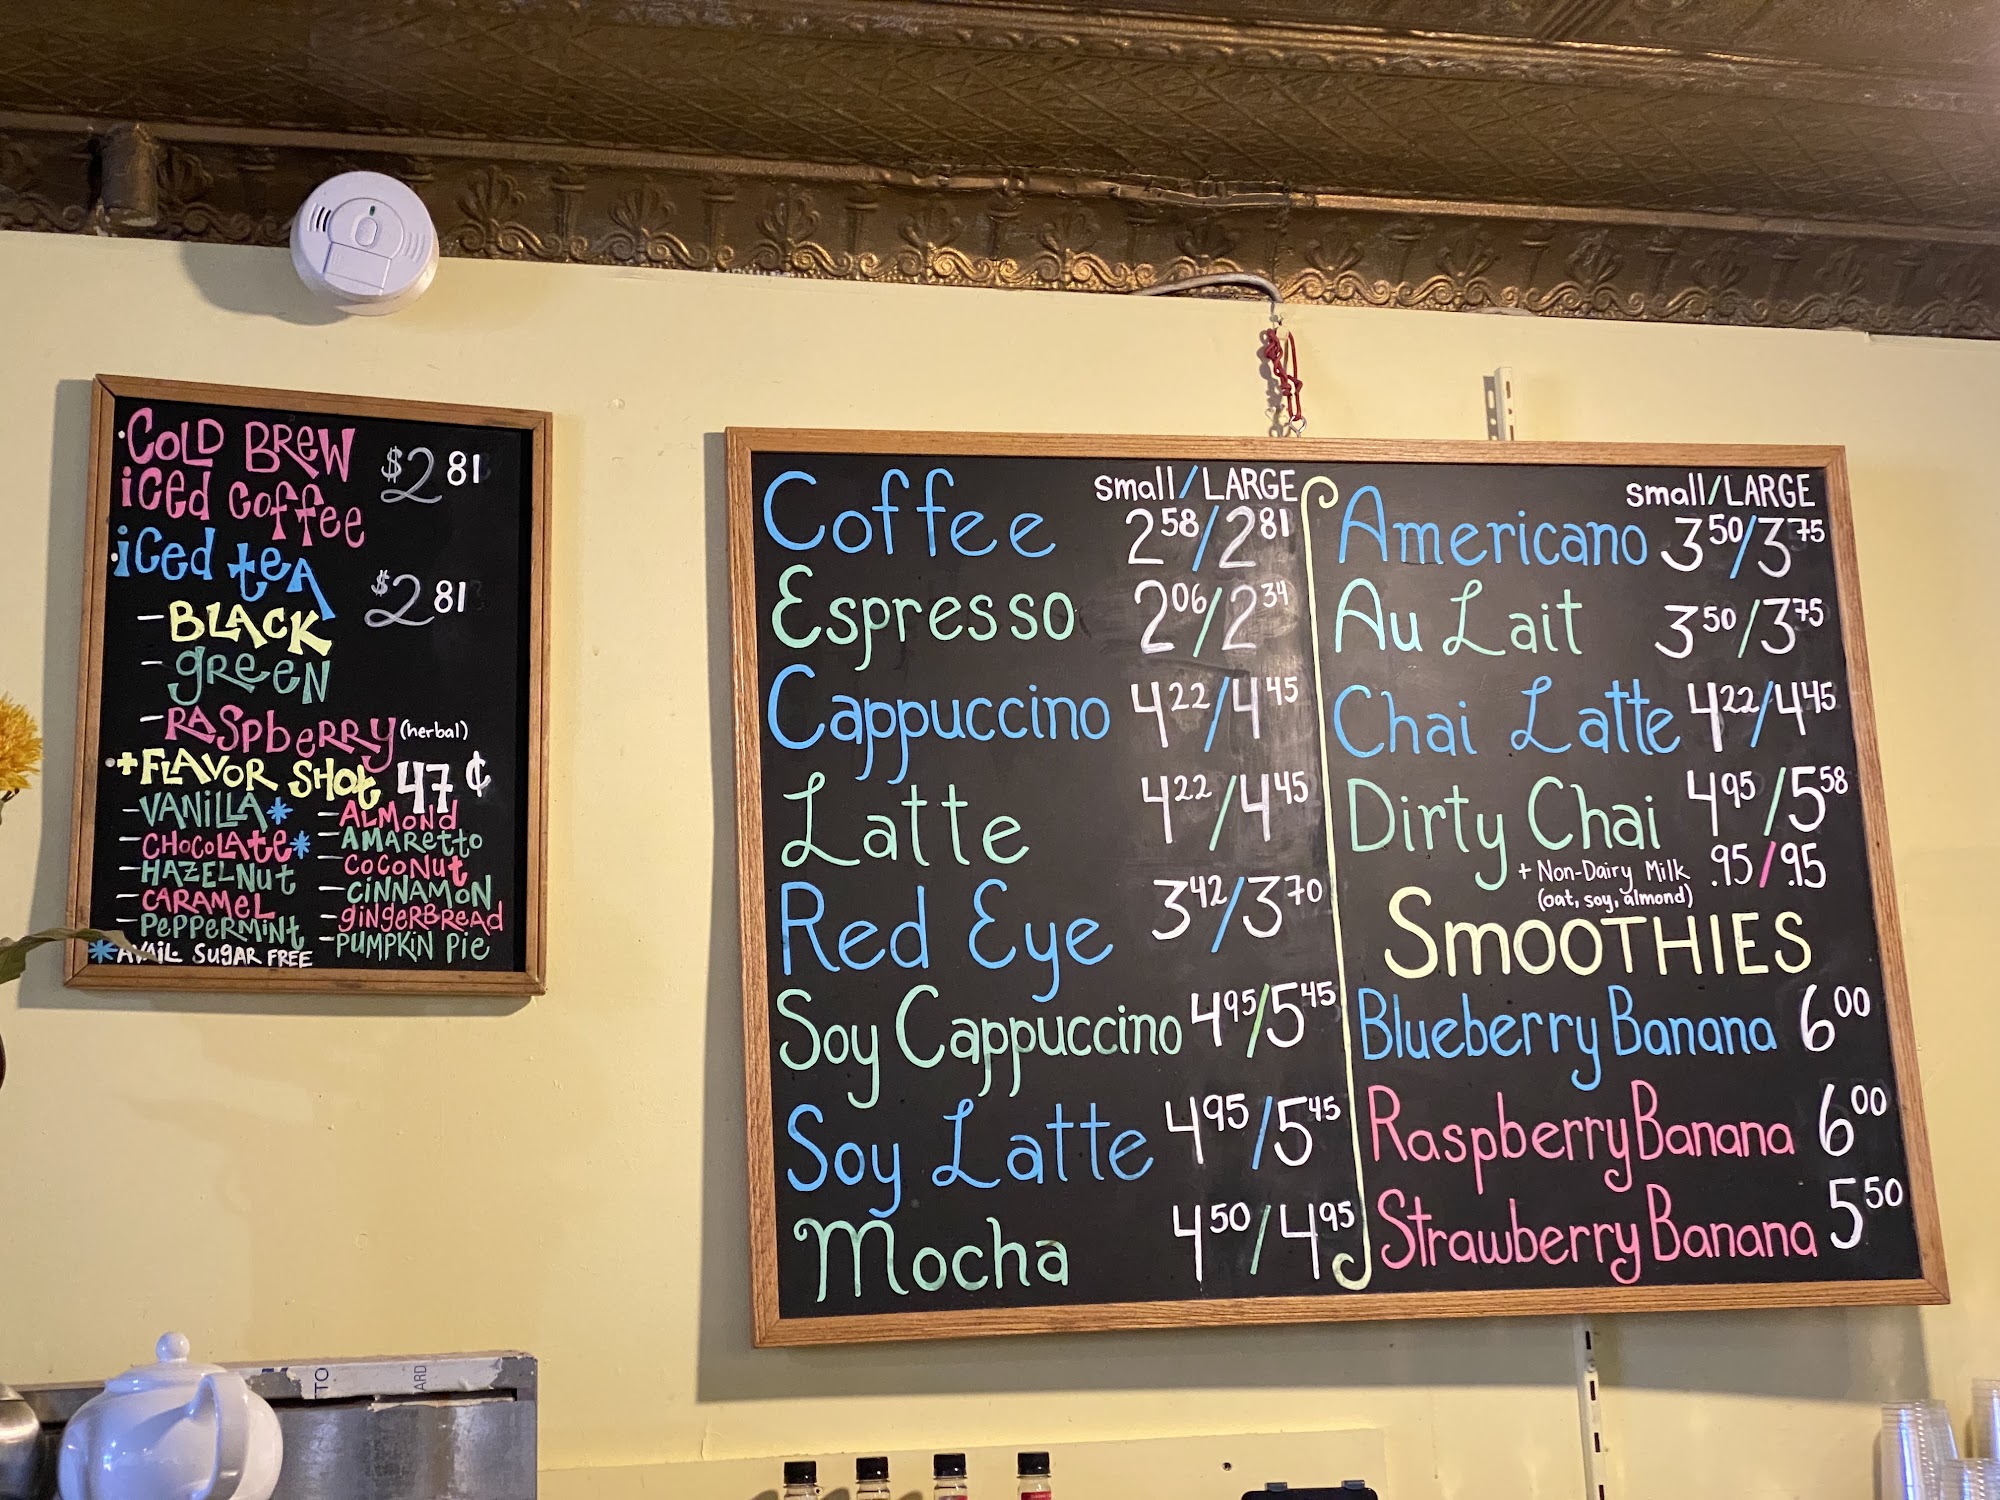 COLD BREW
iced coffee $2 81
iced teA $2 81
- BLACK
- gReeN
- RASpbeRRy (herbal)
+ FLAVOR SHOt 47 ¢
- VANiLLA *
- CHOCOLAte *
- HAZELNut
- CARAMEL
- PePPERMiNt
* AVAIL. SUGAR FREE
- ALMOND
- AMARetto
- COCONUt
- CiNNAMON
- giNgeRBReAD
- PUMPKiN Pie
small/LARGE
Coffee 2 58/2 81
Espresso 2 06/2 34
Cappuccino 4 22/4 45
Latte 4 22/4 45
Red Eye 3 42/3 70
Soy Cappuccino 4 95/5 45
Soy Latte 4 95/5 45
Mocha 4 50/4 95
small/LARGE
Americano 3 50/3 75
Au Lait 3 50/3 75
Chai Latte 4 22/4 45
Dirty Chai 4 95/5 58
+ Non-Dairy Milk .95/.95
(oat, soy, almond)
SMOOTHIES
Blueberry Banana 6 00
Raspberry Banana 6 00
Strawberry Banana 5 50